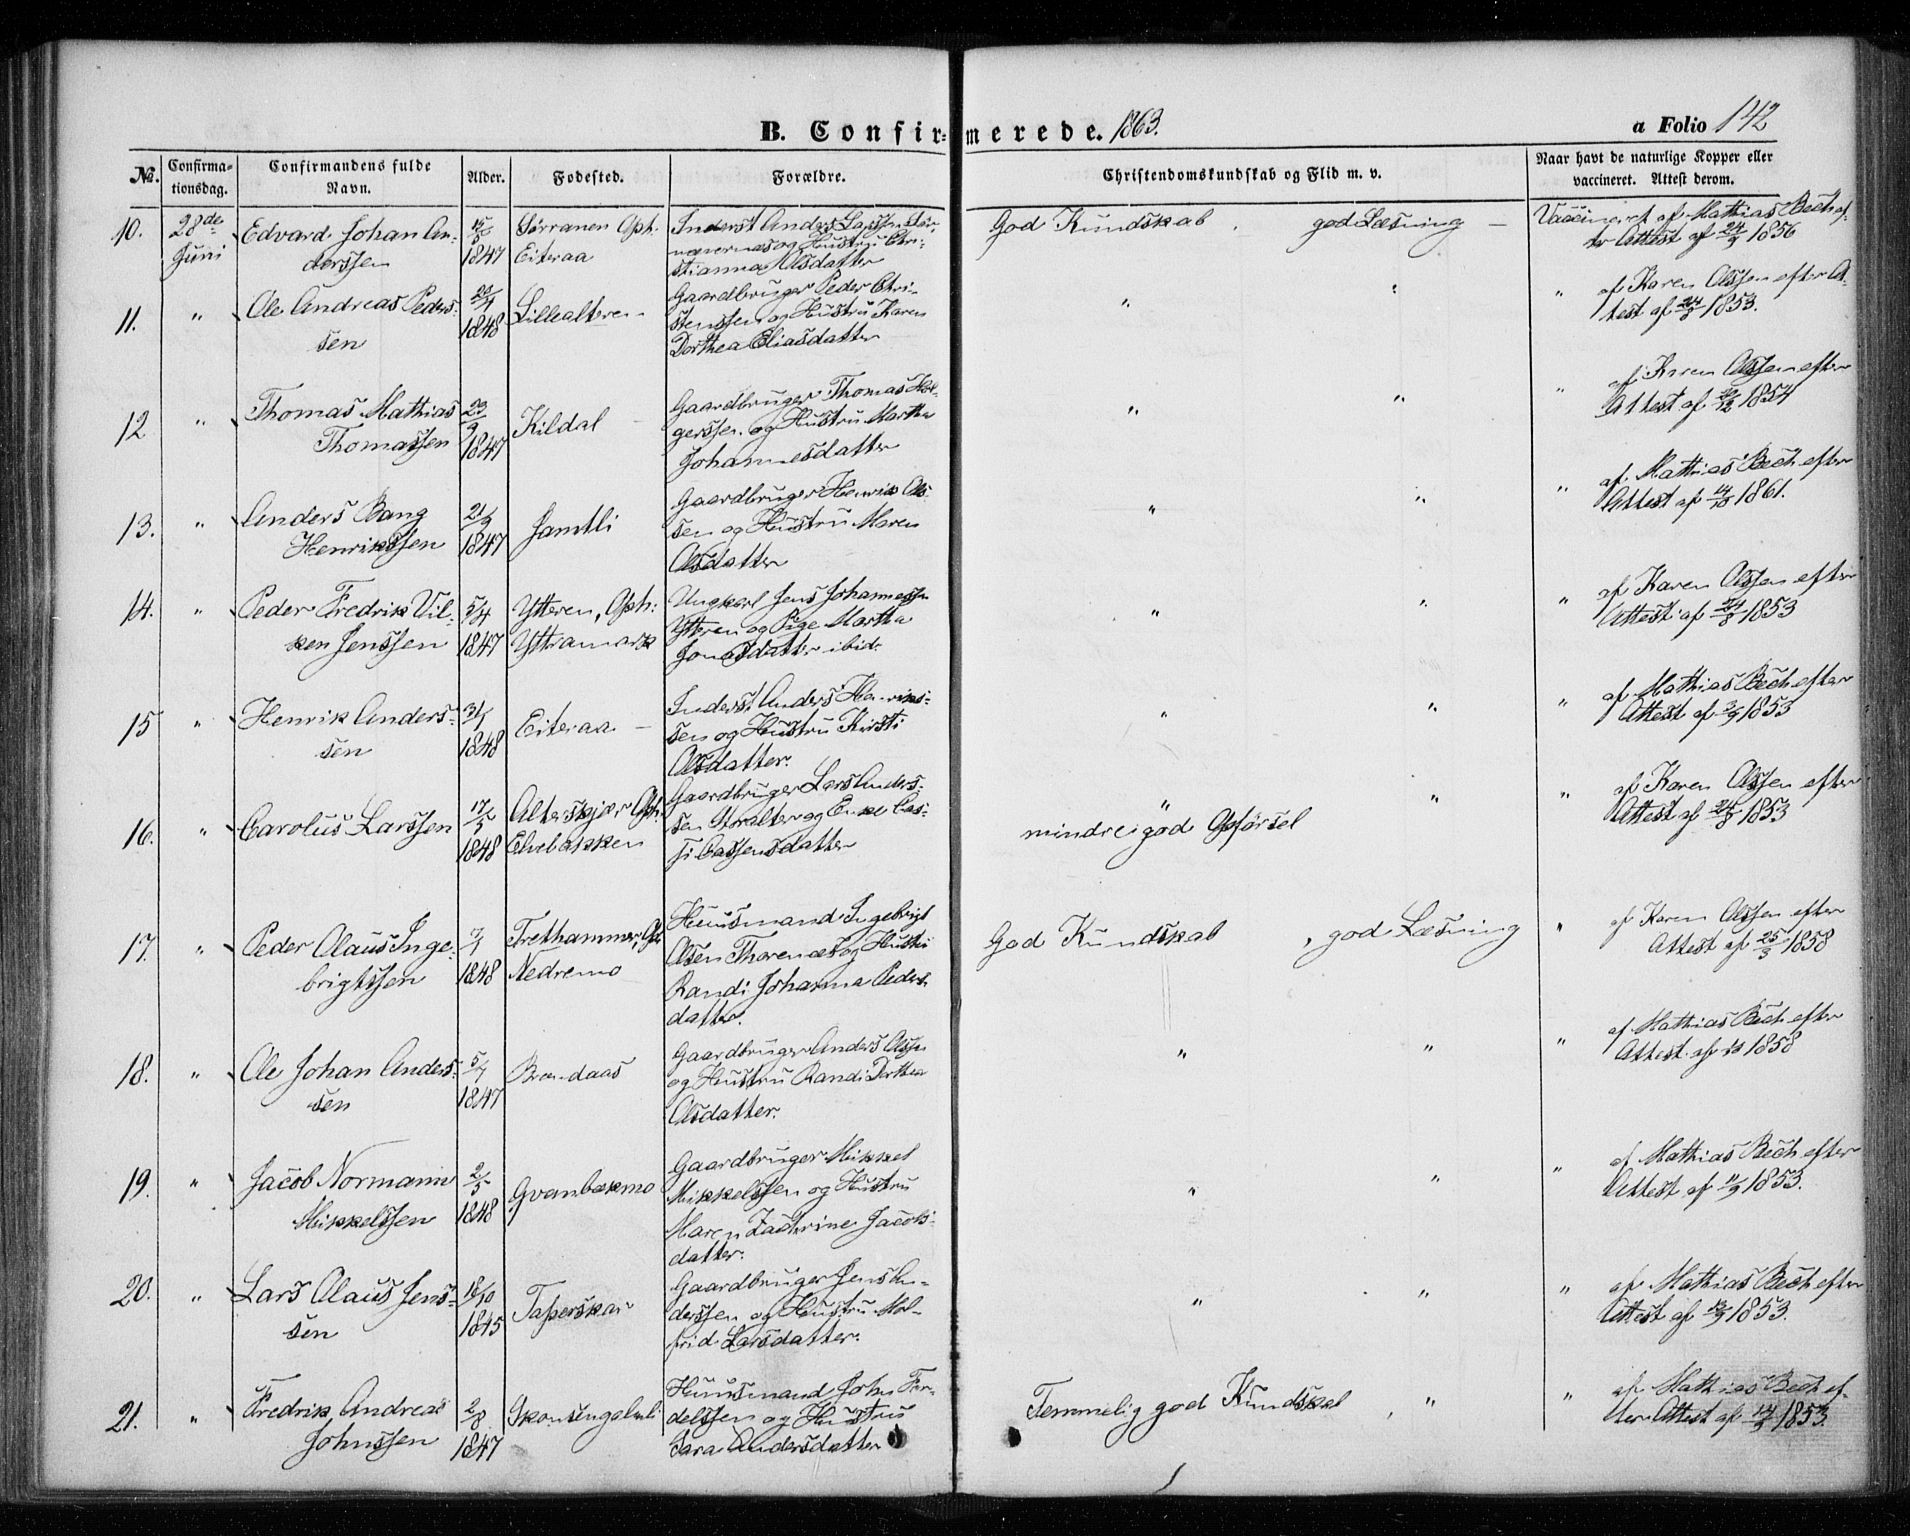 B. Confirmerede. 1863.
a Folio 142
No.
Confirmationsdag.
Confirmandens fulde Navn.
Alder.
Fodested.
Forældre.
Christendomskundskab og Flid m. v.
Naar havt de naturlige Kopper eller vaccineret. Attest derom.
10. 28de Juni
Edvard Johan An-
derssen
15/5 1847
Sörranen Oph.
Eiteraa
Inderst Anders Larssen Sör-
og Hustru Chri-
stianna Olsdatter
God Kundskab, god Læsning —
Vaccineret af Mathias Bech ef-
ter Attest af 24/9 1856
11. "
Ole Andreas Peders-
sen
1848
Lillealteren —
Gaardbruger Peder Chri-
stenssen og Hustru Karen
Dorthea Eliasdatter
" "
" af Karen Olssen efter At-
test af 24/8 1853.
12 "
Thomas Mathias
Thomassen
23/9 1847
Kildal —
Gaardbruger Thomas Hol-
gerssen og Hustru Martha
Johannesdatter
" "
" af Karen Olssen efter
Attest af 1854
13. "
Anders Bang
Henrikssen
21/9 1847
Jamtli
Gaardbruger Henrik Ols-
sen og Hustru Maren
Olsdatter
" "
" af Mathias Bech efter
Attest af 14/10 1861.
14. "
Peder Fredrik Vil-
ken Jenssen
5/4 1847
Ytteren, Oph:
Yttramark
Ungkarl Jens Johannessen
Ytteren og Pige Martha
Jonasdatter ibid:
" "
" af Karen Olssen efter
Attest af 24/8 1853
15 "
Henrik Anders-
sen
31/1 1848
Eiteraa —
Inderst Anders Henriks-
sen og Hustru Kirsti
Olsdatter.
" "
" af Mathias Bech efter
Attest af 3/9 1853
16. "
Carolus Larssen
17/5 1848
Alterskjær Oph.
Elvebakken
Gaardbruger Lars Anders-
sen Storalter og Enke
" "
mindre god Opførsel
" af Karen Olssen efter
Attest af 24/8 1853
17. "
Peder Olaus Inge-
brigtssen
3/1 1848
Trethammer, Oph
Nedremo
Huusmand Ingebrigt
Olsen Thorenæs og Hustru
Randi Johanna Peders-
datter.
God Kundskab, god Læsning
" af Karen Olssen efter
Attest af 25/3 1858
18. "
Ole Johan Anders-
sen
5/7 1847
Brandaas
Gaardbruger Anders Olssen
og Hustru Randi Dorthea
Olsdatter.
" "
" af Mathias Bech efter
Attest af 1858
19. "
Jacob Normann
Mikkelssen
2/5 1848
Gvanbakmo
Gaardbruger Mikkel
Mikkelssen og Hustru
Maren Zachrine Jacobs-
datter.
" "
" af Mathias Bech efter
Attest af 11/9 1853.
20. "
Lars Olaus Jens-
sen
18/10 1845
Tapperskar
Gaardbruger Jens An-
derssen og Hustru Mal-
frid Larsdatter.
" "
" af Mathias Bech efter
Attest af 12/9 1853.
21. "
Fredrik Andreas
Johnssen
2/8 1847
Skonsengsbakli
Huusmand John Far-
delssen og Hustru
Sara Andersdatter
Temmelig god Kundskab, "
" af Mathias Bech ef-
ter Attest af 14/9 1853